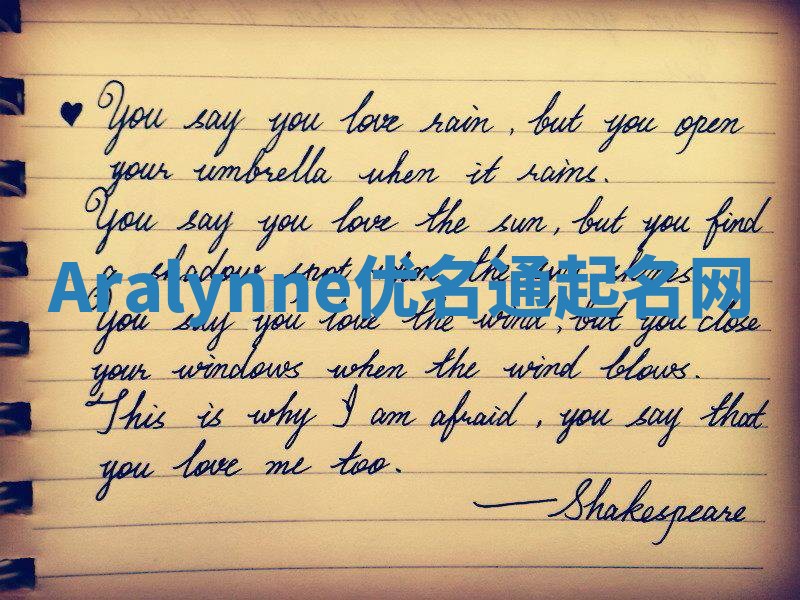 ♥ You say you love rain, but you open
your umbrella when it rains.
You say you love the sun, but you find
a shadow spot when the sun shines.
Aralynne优名通起名网
You say you love the wind, but you close
your windows when the wind blows.
This is why I am afraid, you say that
you love me too.
— Shakespeare